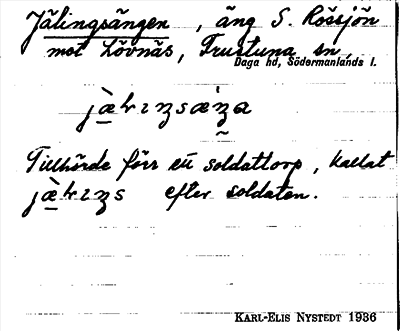 Jälingsängen, äng S. Rössjön
mot Lövnäs, Frustuna sn,
Daga hd, Södermanlands l.
Tillhörde förr ett soldattorp, kallat
efter soldaten.
KARL-ELIS NYSTEDT 1936